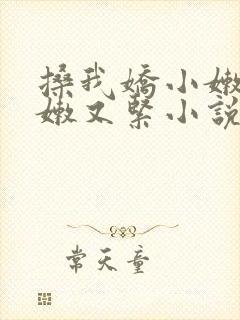 搡我嬌小嫩
嫩又緊小說
常天童